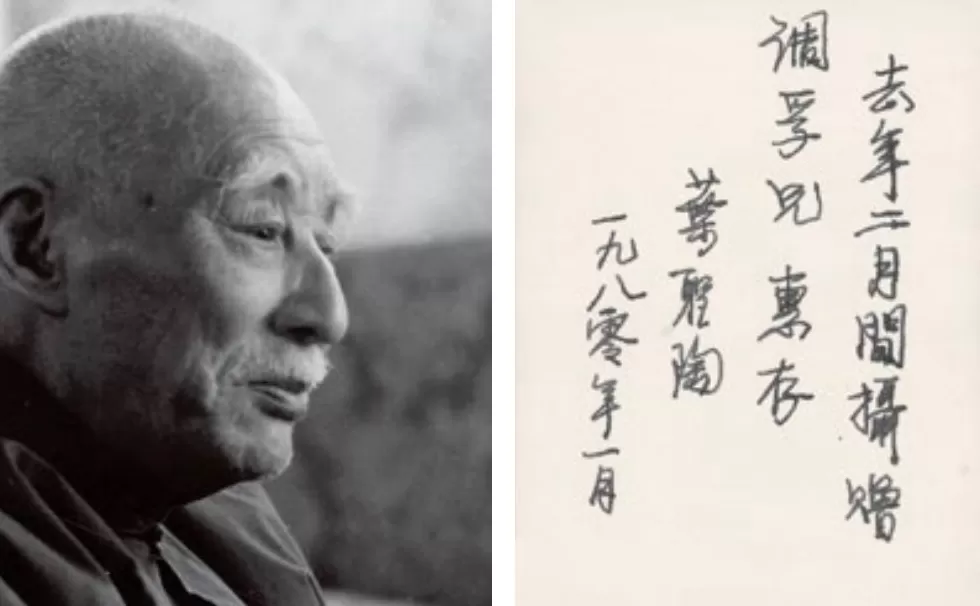 去年二月間攝贈
调孚兄惠存
葉聖陶
一九八零年一月